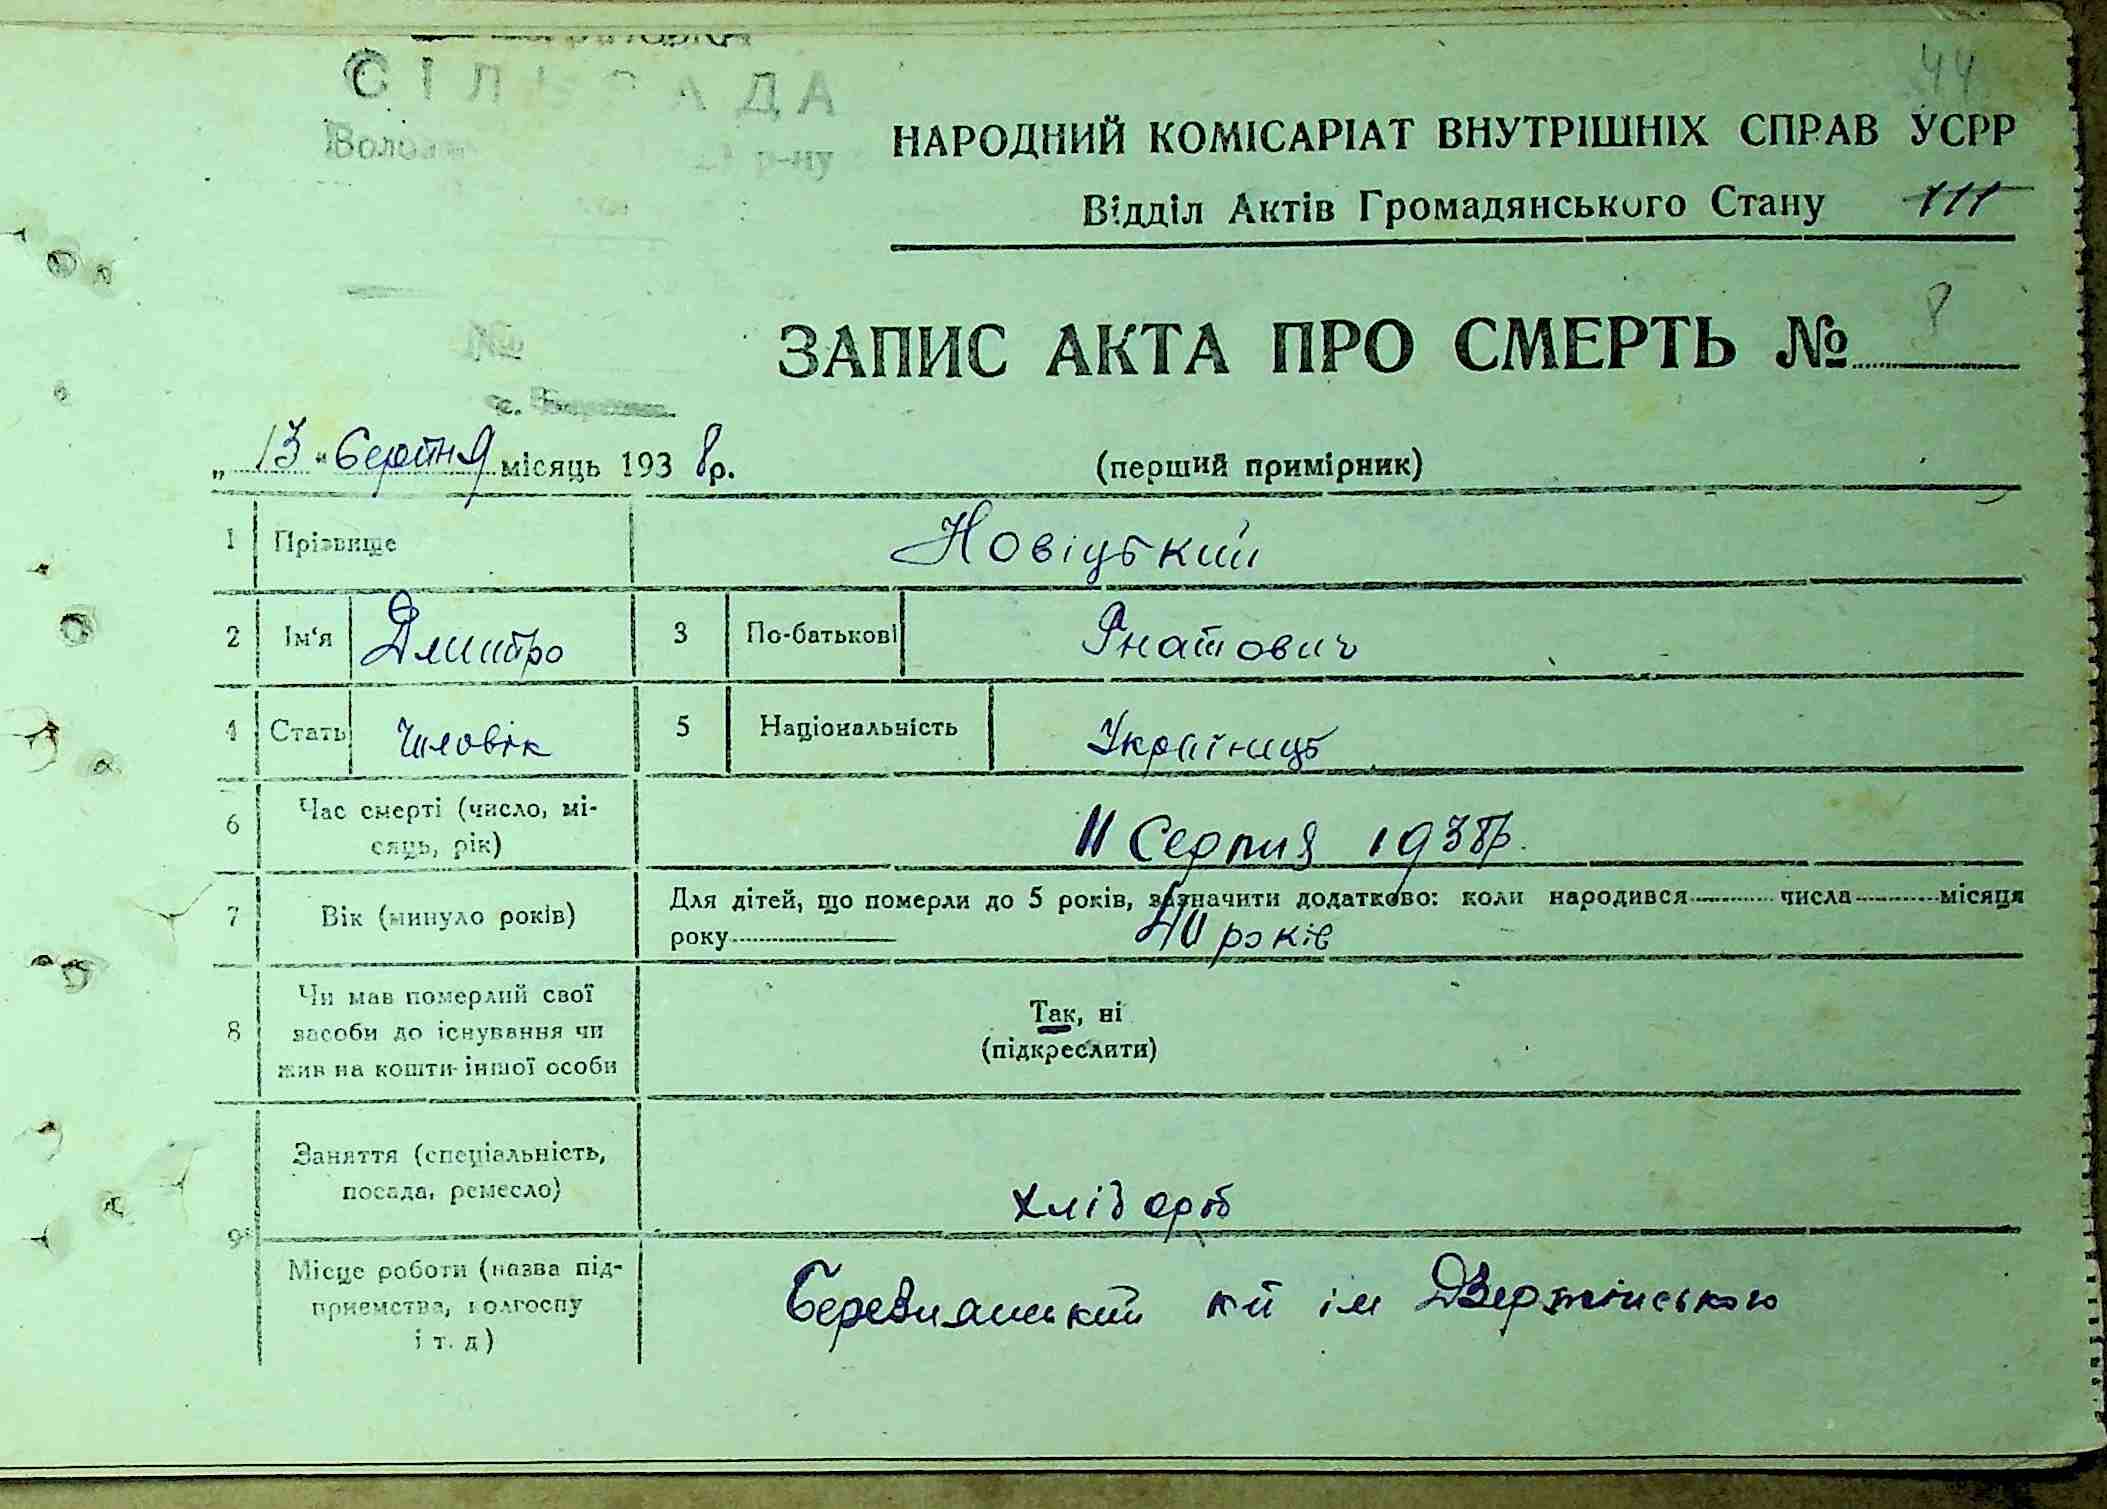 44
СІЛЬРАДА
р-ну
НАРОДНИЙ КОМІСАРІАТ ВНУТРІШНІХ СПРАВ УСРР
Відділ Актів Громадянського Стану 111
№
ЗАПИС АКТА ПРО СМЕРТЬ № 8
„ 13 “ Серпня місяць 1938 р. (перший примірник)
1 Прізвище Новіцький
2 Ім'я Дмитро 3 По-батькові Гнатович
4 Стать Чиловік 5 Національність Українець
6 Час смерті (число, мі-
сяць, рік) 11 Серпня 1938р.
7 Вік (минуло років) Для дітей, що померли до 5 років, зазначити додатково: коли народився числа місяця
року 40 років
8 Чи мав померлий свої
засоби до існування чи
жив на кошти іншої особи
Так, ні
(підкреслити)
9 Заняття (спеціальність,
посада, ремесло) хлібороб
Місце роботи (назва під-
приємства, колгоспу
і т. д)
ім Дзержінського